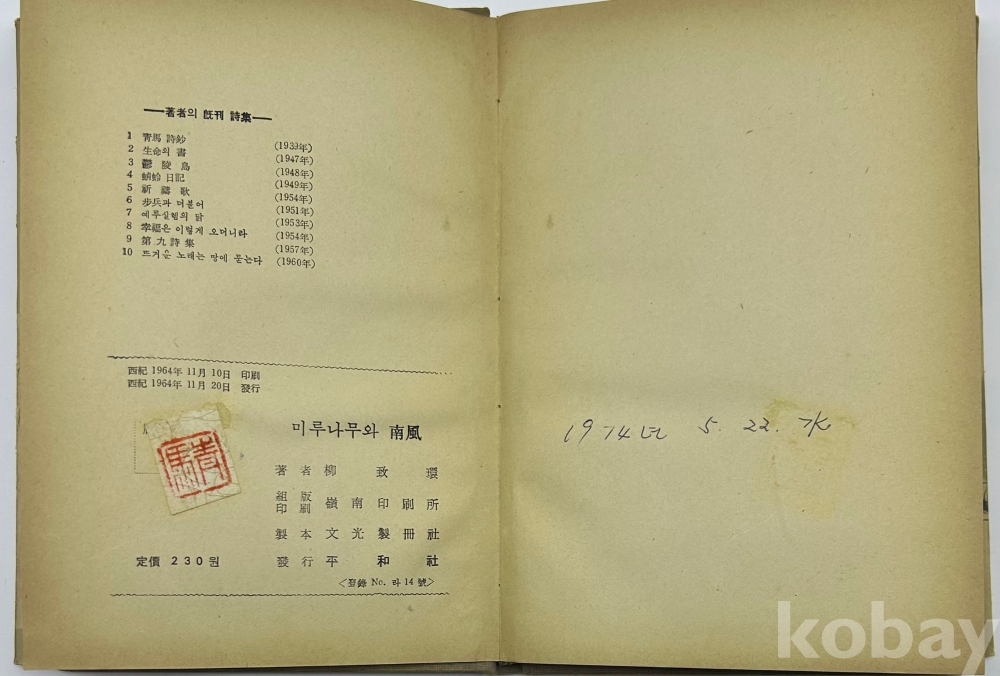 ——著者의 旣刊 詩集——
1 靑馬 詩鈔 (1939年)
2 生命의 書 (1947年)
3 鬱陵島 (1948年)
4 蜻蛉日記 (1949年)
5 祈禱歌 (1954年)
6 步兵과 더불어 (1951年)
7 예루살렘의 닭 (1953年)
8 幸福은 이렇게 오더니라 (1954年)
9 第九詩集 (1957年)
10 뜨거운 노래는 땅에 묻는다 (1960年)
西紀 1964年 11月 10日 印刷
西紀 1964年 11月 20日 發行
미루나무와 南風
著者 柳致環
組版
印刷 嶺南印刷所
製本 文光製冊社
定價 230원
發行 平和社
<登錄 No. 라 14號>
靑馬
1974년 5. 22. 水
kobay